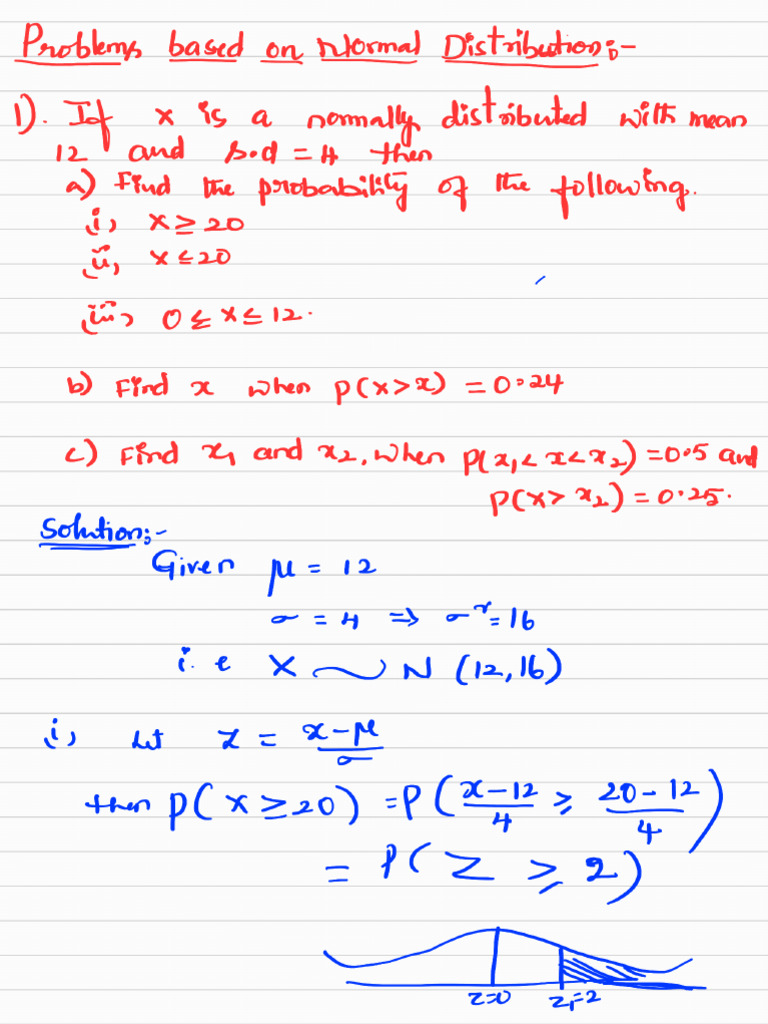 Problems based on Normal Distribution:-
1). If x is a normally distributed with mean
12 and s.d = 4 then
a) Find the probability of the following.
i, x ≥ 20
ii, x ≤ 20
iii, 0 ≤ x ≤ 12.
b) Find x when P(x > x) = 0.24
c) Find x₁ and x₂, when P(x₁ < x < x₂) = 0.5 and
P(x > x₂) = 0.25.
Solution:-
Given μ = 12
σ = 4 ⇒ σ² = 16
i.e X ~ N (12, 16)
i, Let z = (x-μ)/σ
then P(x ≥ 20) = P((x-12)/4 ≥ (20-12)/4)
= P(Z ≥ 2)
z=0 z₁=2